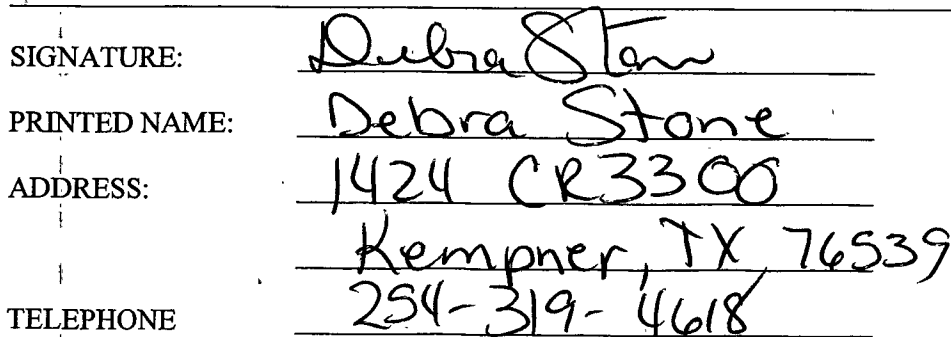 SIGNATURE: Debra Stone
PRINTED NAME: Debra Stone
ADDRESS: 1424 CR3300
Kempner, TX 76539
TELEPHONE 254-319-4618